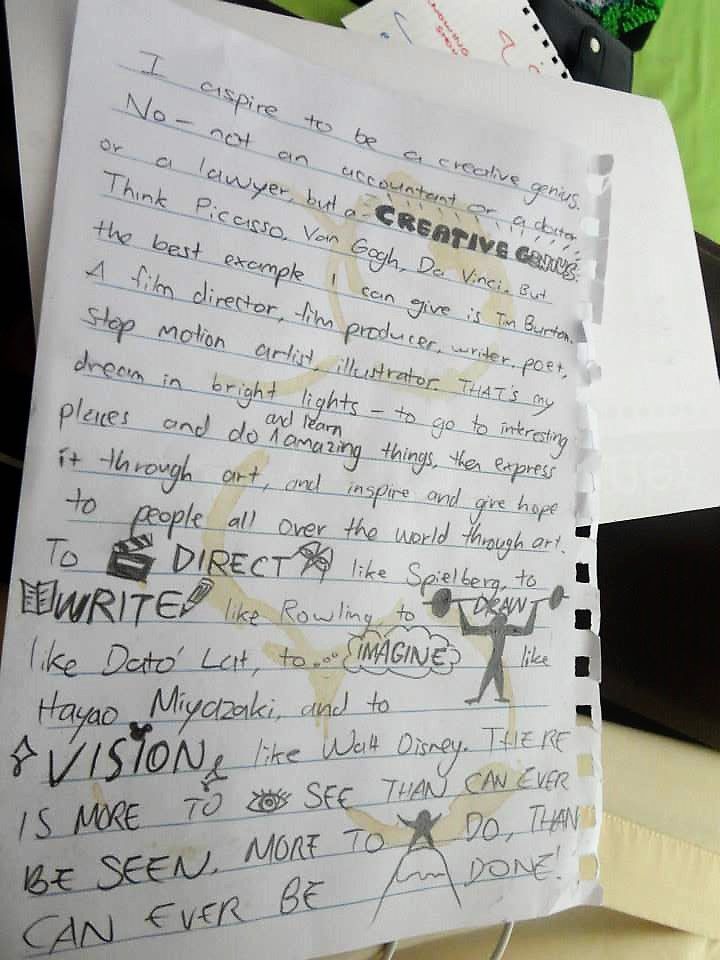 KNOWING
SHOW
I aspire to be a creative genius.
No – not an accountant or a doctor
or a lawyer, but a CREATIVE GENIUS.
Think Picasso, Van Gogh, Da Vinci. But
the best example I can give is Tim Burton.
A film director, film producer, writer, poet,
stop motion artist, illustrator. THAT'S my
dream in bright lights – to go to interesting
places and do and learn amazing things, then express
it through art, and inspire and give hope
to people all over the world through art.
To DIRECT like Spielberg, to
WRITE like Rowling, to DRAW
like Dato' Lat, to... IMAGINE like
Hayao Miyazaki, and to
VISION like Walt Disney. THERE
IS MORE TO SEE THAN CAN EVER
BE SEEN, MORE TO DO, THAN
CAN EVER BE DONE!